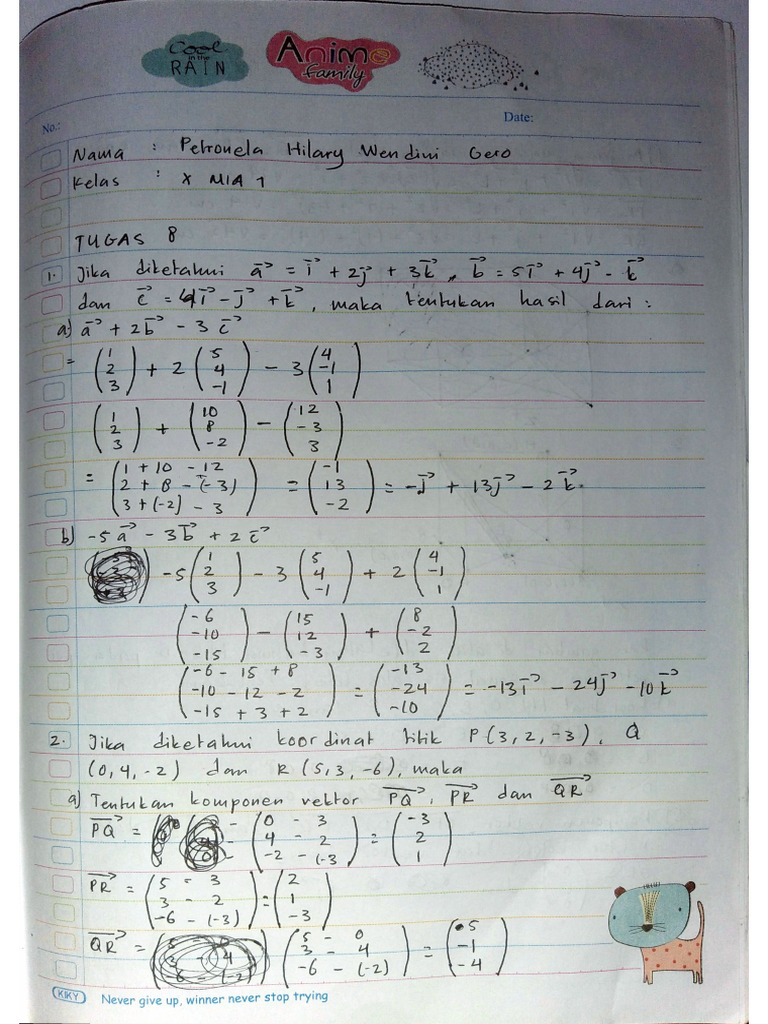 Cool
in the
RAIN
Anime
family
No.:
Date:
Nama : Petronela Hilary Wendini Gero
Kelas : X MIA 1
TUGAS 8
1. Jika diketahui a⃗ = i⃗ + 2j⃗ + 3k⃗, b⃗ = 5i⃗ + 4j⃗ - k⃗
dan c⃗ = 4i⃗ - j⃗ + k⃗, maka tentukan hasil dari :
a) a⃗ + 2b⃗ - 3c⃗
= (1 2 3) + 2 (5 4 -1) - 3 (4 -1 1)
(1 2 3) + (10 8 -2) - (12 -3 3)
= (1 + 10 - 12
2 + 8 - (-3)
3 + (-2) - 3) = (-1 13 -2) = -j⃗ + 13j⃗ - 2k⃗.
b) -5a⃗ - 3b⃗ + 2c⃗
-5 (1 2 3) - 3 (5 4 -1) + 2 (4 -1 1)
(-6 -10 -15) - (15 12 -3) + (8 -2 2)
(-6 - 15 + 8
-10 - 12 - 2
-15 + 3 + 2) = (-13 -24 -10) = -13i⃗ - 24j⃗ - 10k⃗
2. Jika diketahui koordinat titik P(3, 2, -3), Q
(0, 4, -2) dan R (5, 3, -6), maka
a) Tentukan komponen vektor PQ⃗, PR⃗ dan QR⃗
PQ⃗ = (0 - 3
4 - 2
-2 - (-3) = (-3 2 1)
PR⃗ = (5 - 3
3 - 2
-6 - (-3)) = (2 1 -3)
QR⃗ = (5 - 0
3 - 4
-6 - (-2)) = (5 -1 -4)
KIKY
Never give up, winner never stop trying